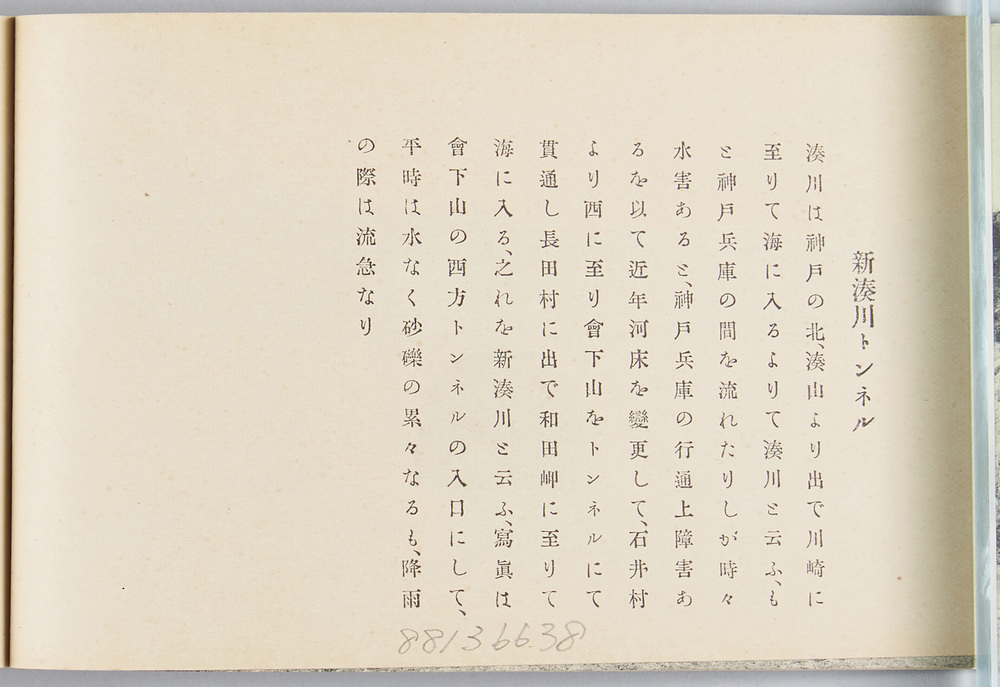 新湊川トンネル
湊川は神戸の北、湊山より出で川崎に
至りて海に入るよりて湊川と云ふ、も
と神戸兵庫の間を流れたりしが時々
水害あると、神戸兵庫の行通上障害あ
るを以て近年河床を變更して、石井村
より西に至り會下山をトンネルにて
貫通し長田村に出で和田岬に至りて
海に入る、之れを新湊川と云ふ、寫眞は
會下山の西方トンネルの入口にして、
平時は水なく砂礫の累々なるも、降雨
の際は流急なり
88136638